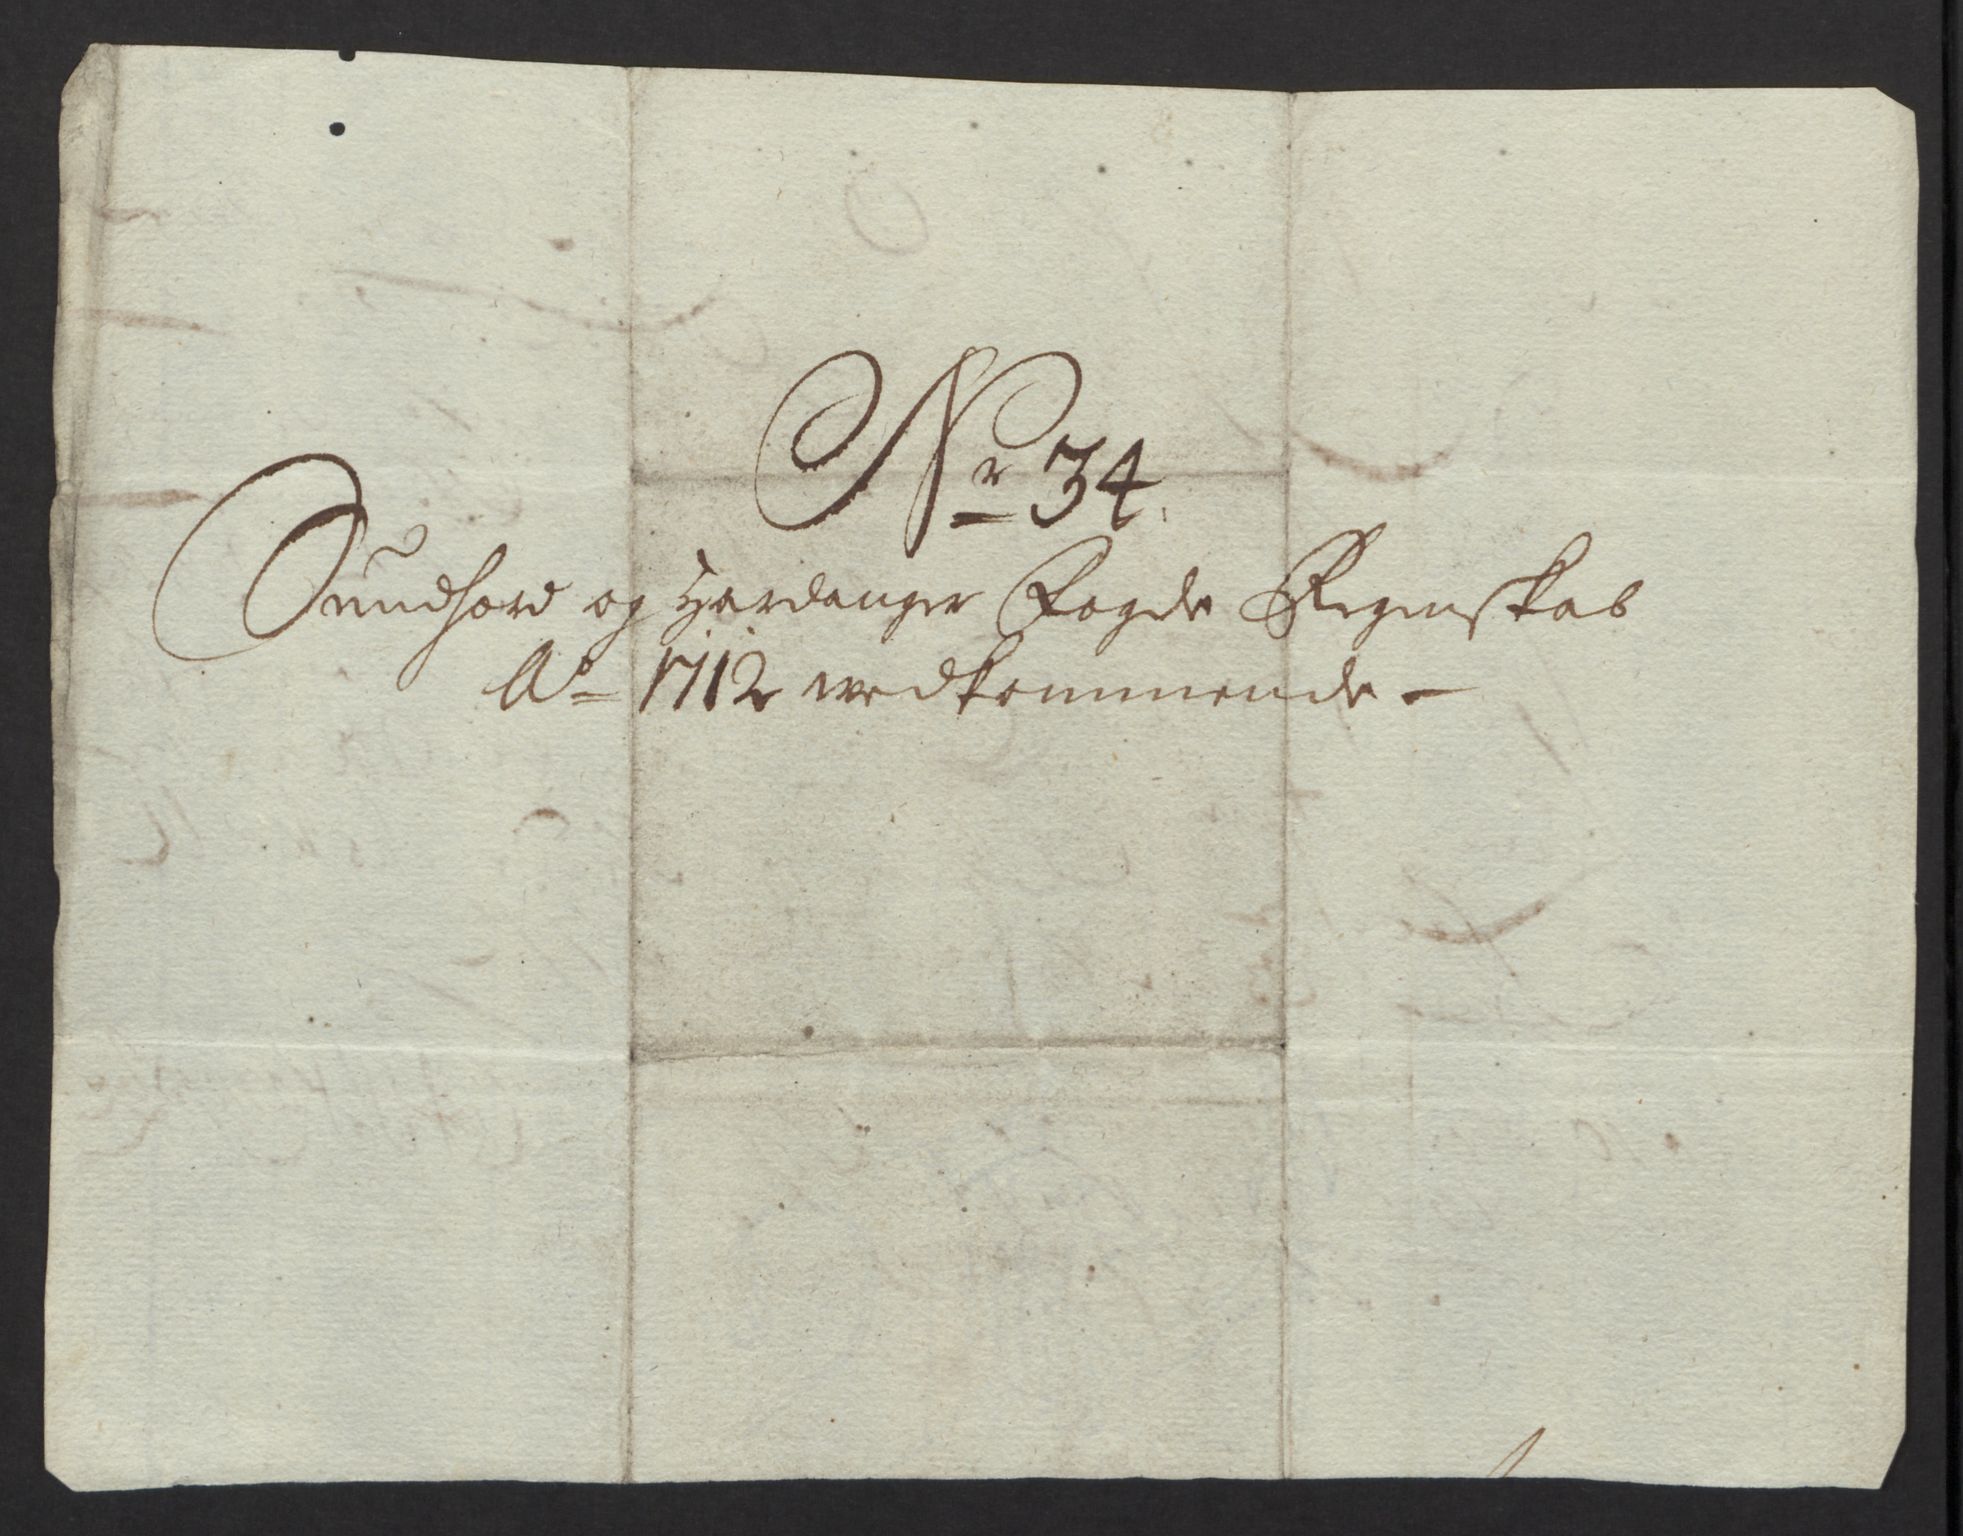 Nr 34.
Sundhord og Hardanger Fogde Regenskab
Ao 1712 vedkommende -